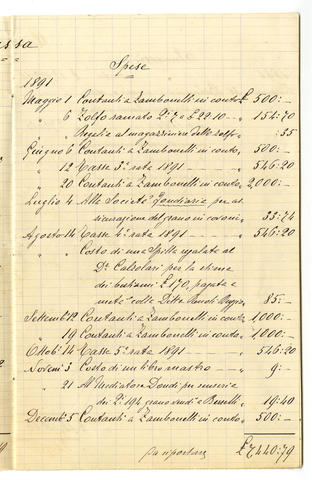 ssa
Spese
1891
Maggio 1 Contanti a Zambonelli in conto £ 500:–
" 6 Zolfo ramato Q.li 7 a £ 22.10 – " 154:70
" Regali al magazziniere dello zolfo " :35
Giugno 6 Contanti a Zambonelli in conto " 500:–
" 12 Tasse 3a rata 1891 – " 546:20
" 20 Contanti a Zambonelli in conto " 2,000:–
Luglio 4 Alla Società Fondiaria per as
sicurazione del grano in covoni " 33:74
Agosto 14 Tasse 4a rata 1891 – " 546:20
" " Costo di una Spilla regalata al
Dr. Calzolari per la stima
dei bestiami £ 170, pagata a
metà colla Ditta 85:–
Settemb 12 Contanti a Zambonelli in conto " 1000:–
" 19 Contanti a Zambonelli in conto " 1,000:–
Ottob. 14 Tasse 5a rata 1891 – " 546:20
Novem 5 Costo di un libro mastro – " 9:–
" 21 Al Mediatore Dondi per senseria
dei Q.li 194 grano vend. a 19:40
Decemb 5 Contanti a Zambonelli in conto " 500:–
Da riportare £ 7440:79